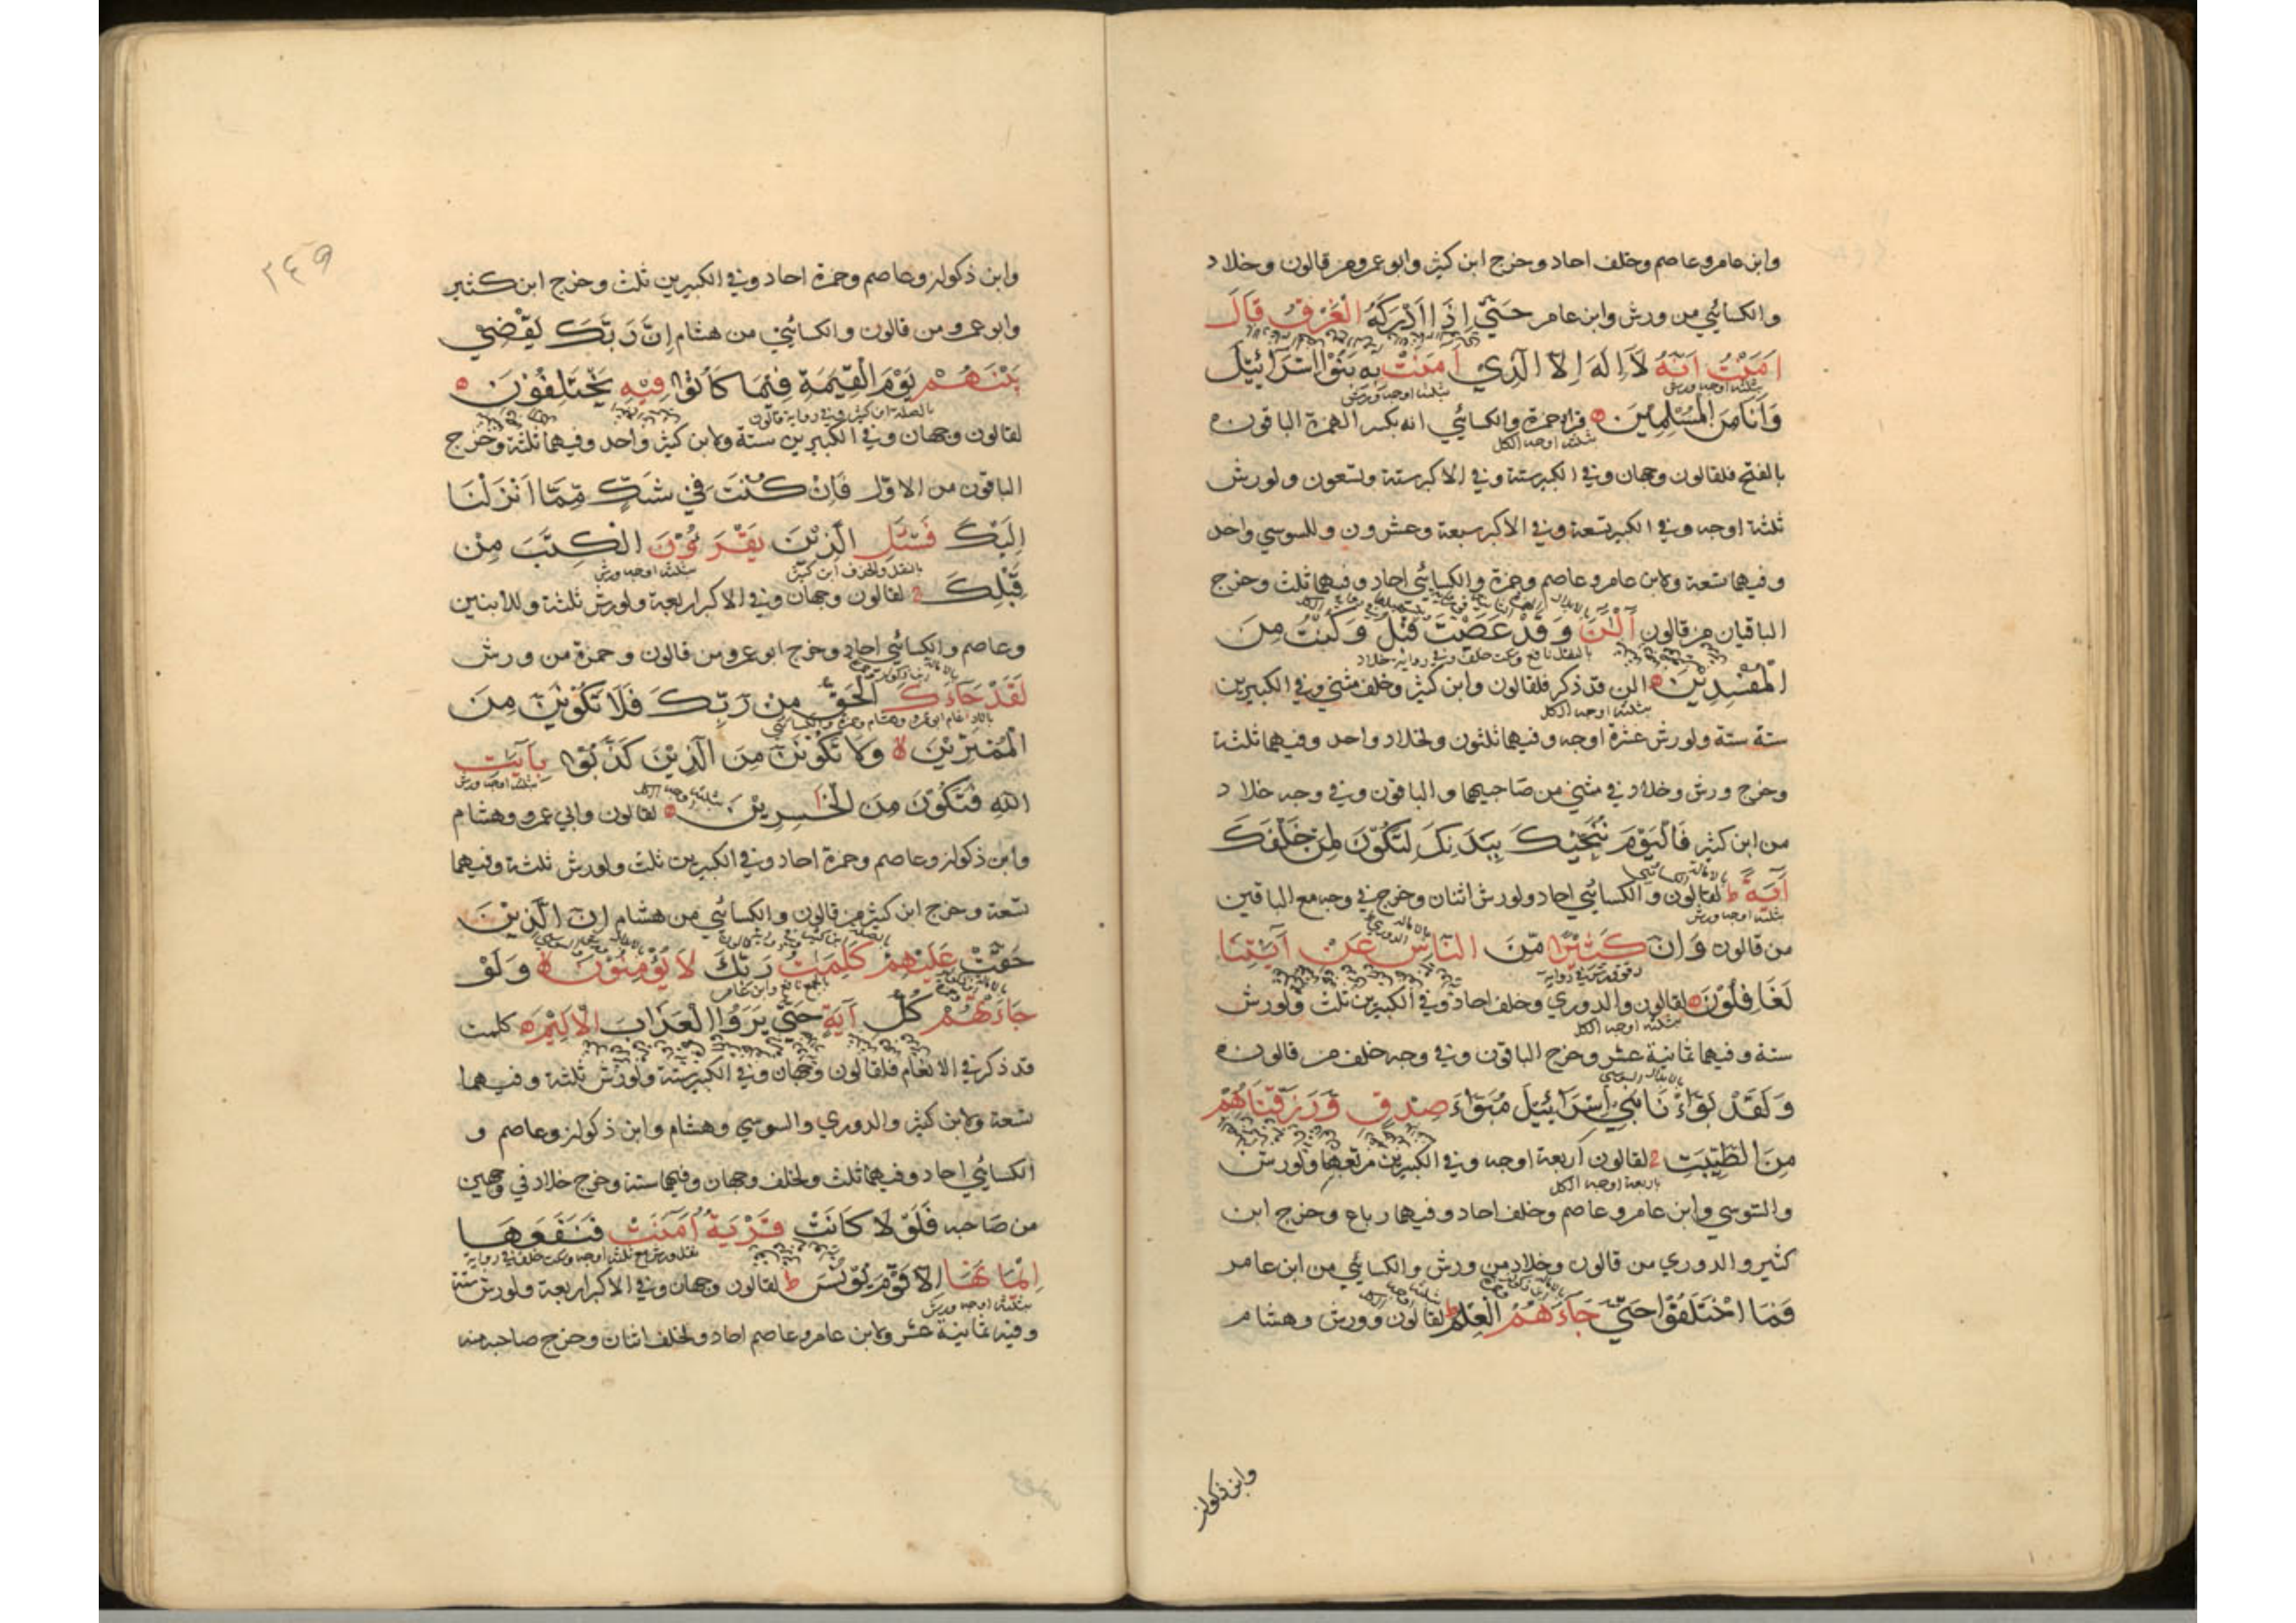 وابن عامر وعاصم وخلف احاد وخرج ابن كثير وابو عمرو من قالون وخلاد
والكسائي من ورش وابن عامر حَتَّى اِذَا اَدْرَكَهُ الْغَرَقُ قَالَ
اٰمَنْتُ اَنَّهُ لَا اِلٰهَ اِلَّا الَّذِي اٰمَنَتْ بِهِ بَنُوْا اِسْرَائِيْلَ
بثلثة اوجه ورش بثلثة اوجه ورش
وَاَنَا مِنَ الْمُسْلِمِيْنَ قرا حمزة والكسائي انه بكسر الهمزة الباقون
بثلثة اوجه الكل
بالفتح فلقالون وجهان وفي الكبير ستة وفي الاكبر ستة وتسعون ولورش
ثلثة اوجه وفي الكبير تسعة وفي الاكبر سبعة وعشرون وللسوسي واحد
وفيهما تسعة ولابن عامر وعاصم وحمزة والكسائي احاد وفيهما ثلث وخرج
الباقيان من قالون آلْئٰنَ وَقَدْ عَصَيْتَ قَبْلُ وَكُنْتَ مِنَ
بالنقل نافع وسكت خلف وفي رواية خلاد
الْمُفْسِدِيْنَ الن قد ذكر فلقالون وابن كثير وخلف مثنى وفي الكبيرين
بثلثة اوجه الكل
ستة ستة ولورش عشرة اوجه وفيهما ثلثون ولخلاد واحد وفيهما ثلثة
وخرج ورش وخلاد في مثنى من صاحبيهما والباقون وفي وجه خلاد
من ابن كثير فَالْيَوْمَ نُنَجِّيْكَ بِبَدَنِكَ لِتَكُوْنَ لِمَنْ خَلْفَكَ
بالامالة الكسائي
اٰيَةً ط لقالون والكسائي احاد ولورش اثنان وخرج في وجه مع الباقين
بثلثة اوجه ورش
من قالون وَاِنَّ كَثِيْرًا مِّنَ النَّاسِ عَنْ اٰيٰتِنَا
لَغَافِلُوْنَ لقالون والدوري وخلف احاد وفي الكبيرين ثلث ولورش
بثلثة اوجه الكل
ستة وفيهما ثمانية عشر وخرج الباقون وفي وجه خلف من قالون
بالابدال السوسي
وَلَقَدْ بَوَّاْنَا بَنِيْ اِسْرَائِيْلَ مُبَوَّاَ صِدْقٍ وَّرَزَقْنَاهُمْ
مِنَ الطَّيِّبٰتِ لقالون اربعة اوجه وفي الكبيرين مربعها ولورش
باربعة اوجه الكل
والسوسي وابن عامر وعاصم وخلف احاد وفيهما رباع وخرج ابن
كثير والدوري من قالون وخلاد من ورش والكسائي من ابن عامر
فَمَا اخْتَلَفُوْا حَتَّى جَاءَهُمُ الْعِلْمُ ط لقالون وورش وهشام
وابن ذكوان
٢٤٩
وابن ذكوان وعاصم وحمزة احاد وفي الكبيرين ثلث وخرج ابن كثير
وابو عمرو من قالون والكسائي من هشام اِنَّ رَبَّكَ يَقْضِيْ
بَيْنَهُمْ يَوْمَ الْقِيٰمَةِ فِيْمَا كَانُوْا فِيْهِ يَخْتَلِفُوْنَ
بالصلة ابن كثير وفي رواية قالون
لقالون وجهان وفي الكبيرين ستة ولابن كثير واحد وفيهما ثلثة وخرج
الباقون من الاول فَاِنْ كُنْتَ فِيْ شَكٍّ مِّمَّا اَنْزَلْنَا
اِلَيْكَ فَسْئَلِ الَّذِيْنَ يَقْرَءُوْنَ الْكِتٰبَ مِنْ
بالنقل والحذف ابن كثير بثلثة اوجه ورش
قَبْلِكَ لقالون وجهان وفي الاكبر اربعة ولورش ثلثة وللابنين
وعاصم والكسائي احاد وخرج ابو عمرو من قالون وحمزة من ورش
لَقَدْ جَاءَكَ الْحَقُّ مِنْ رَّبِّكَ فَلَا تَكُوْنَنَّ مِنَ
بالادغام ابو عمرو وهشام وحمزة والكسائي
الْمُمْتَرِيْنَ لا وَلَا تَكُوْنَنَّ مِنَ الَّذِيْنَ كَذَّبُوْا بِاٰيٰتِ
بثلثة اوجه ورش
اللّٰهِ فَتَكُوْنَ مِنَ الْخٰسِرِيْنَ لقالون وابي عمرو وهشام
وابن ذكوان وعاصم وحمزة احاد وفي الكبيرين ثلث ولورش ثلثة وفيهما
تسعة وخرج ابن كثير من قالون والكسائي من هشام اِنَّ الَّذِيْنَ
حَقَّتْ عَلَيْهِمْ كَلِمٰتُ رَبِّكَ لَا يُؤْمِنُوْنَ لا وَلَوْ
بالجمع نافع وابن عامر
جَاءَتْهُمْ كُلُّ اٰيَةٍ حَتَّى يَرَوُا الْعَذَابَ الْاَلِيْمَ كلمت
قد ذكر في الانعام فلقالون وجهان وفي الكبير ستة ولورش ثلثة وفيهما
تسعة ولابن كثير والدوري والسوسي وهشام وابن ذكوان وعاصم و
الكسائي احاد وفيهما ثلث ولخلف وجهان وفيهما ستة وخرج خلاد في وجهين
من صاحبه فَلَوْلَا كَانَتْ قَرْيَةٌ اٰمَنَتْ فَنَفَعَهَا
نقل ورش مع ثلثة اوجه وسكت خلف في رواية
اِيْمَانُهَا اِلَّا قَوْمَ يُوْنُسَ ط لقالون وجهان وفي الاكبر اربعة ولورش ستة
بثلثة اوجه ورش
وفيه ثمانية عشر ولابن عامر وعاصم احاد ولخلف اثنان وخرج صاحبه منه